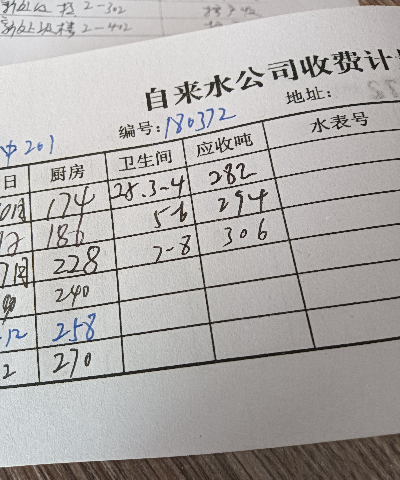 2-302
2-402
自来水公司收费计
中201
编号:180372
地址:
日 厨房 卫生间 应收吨 水表号
10月 174 28.3-4 282
12 186 5-6 294
7月 228 7-8 306
240
-12 258
2 270